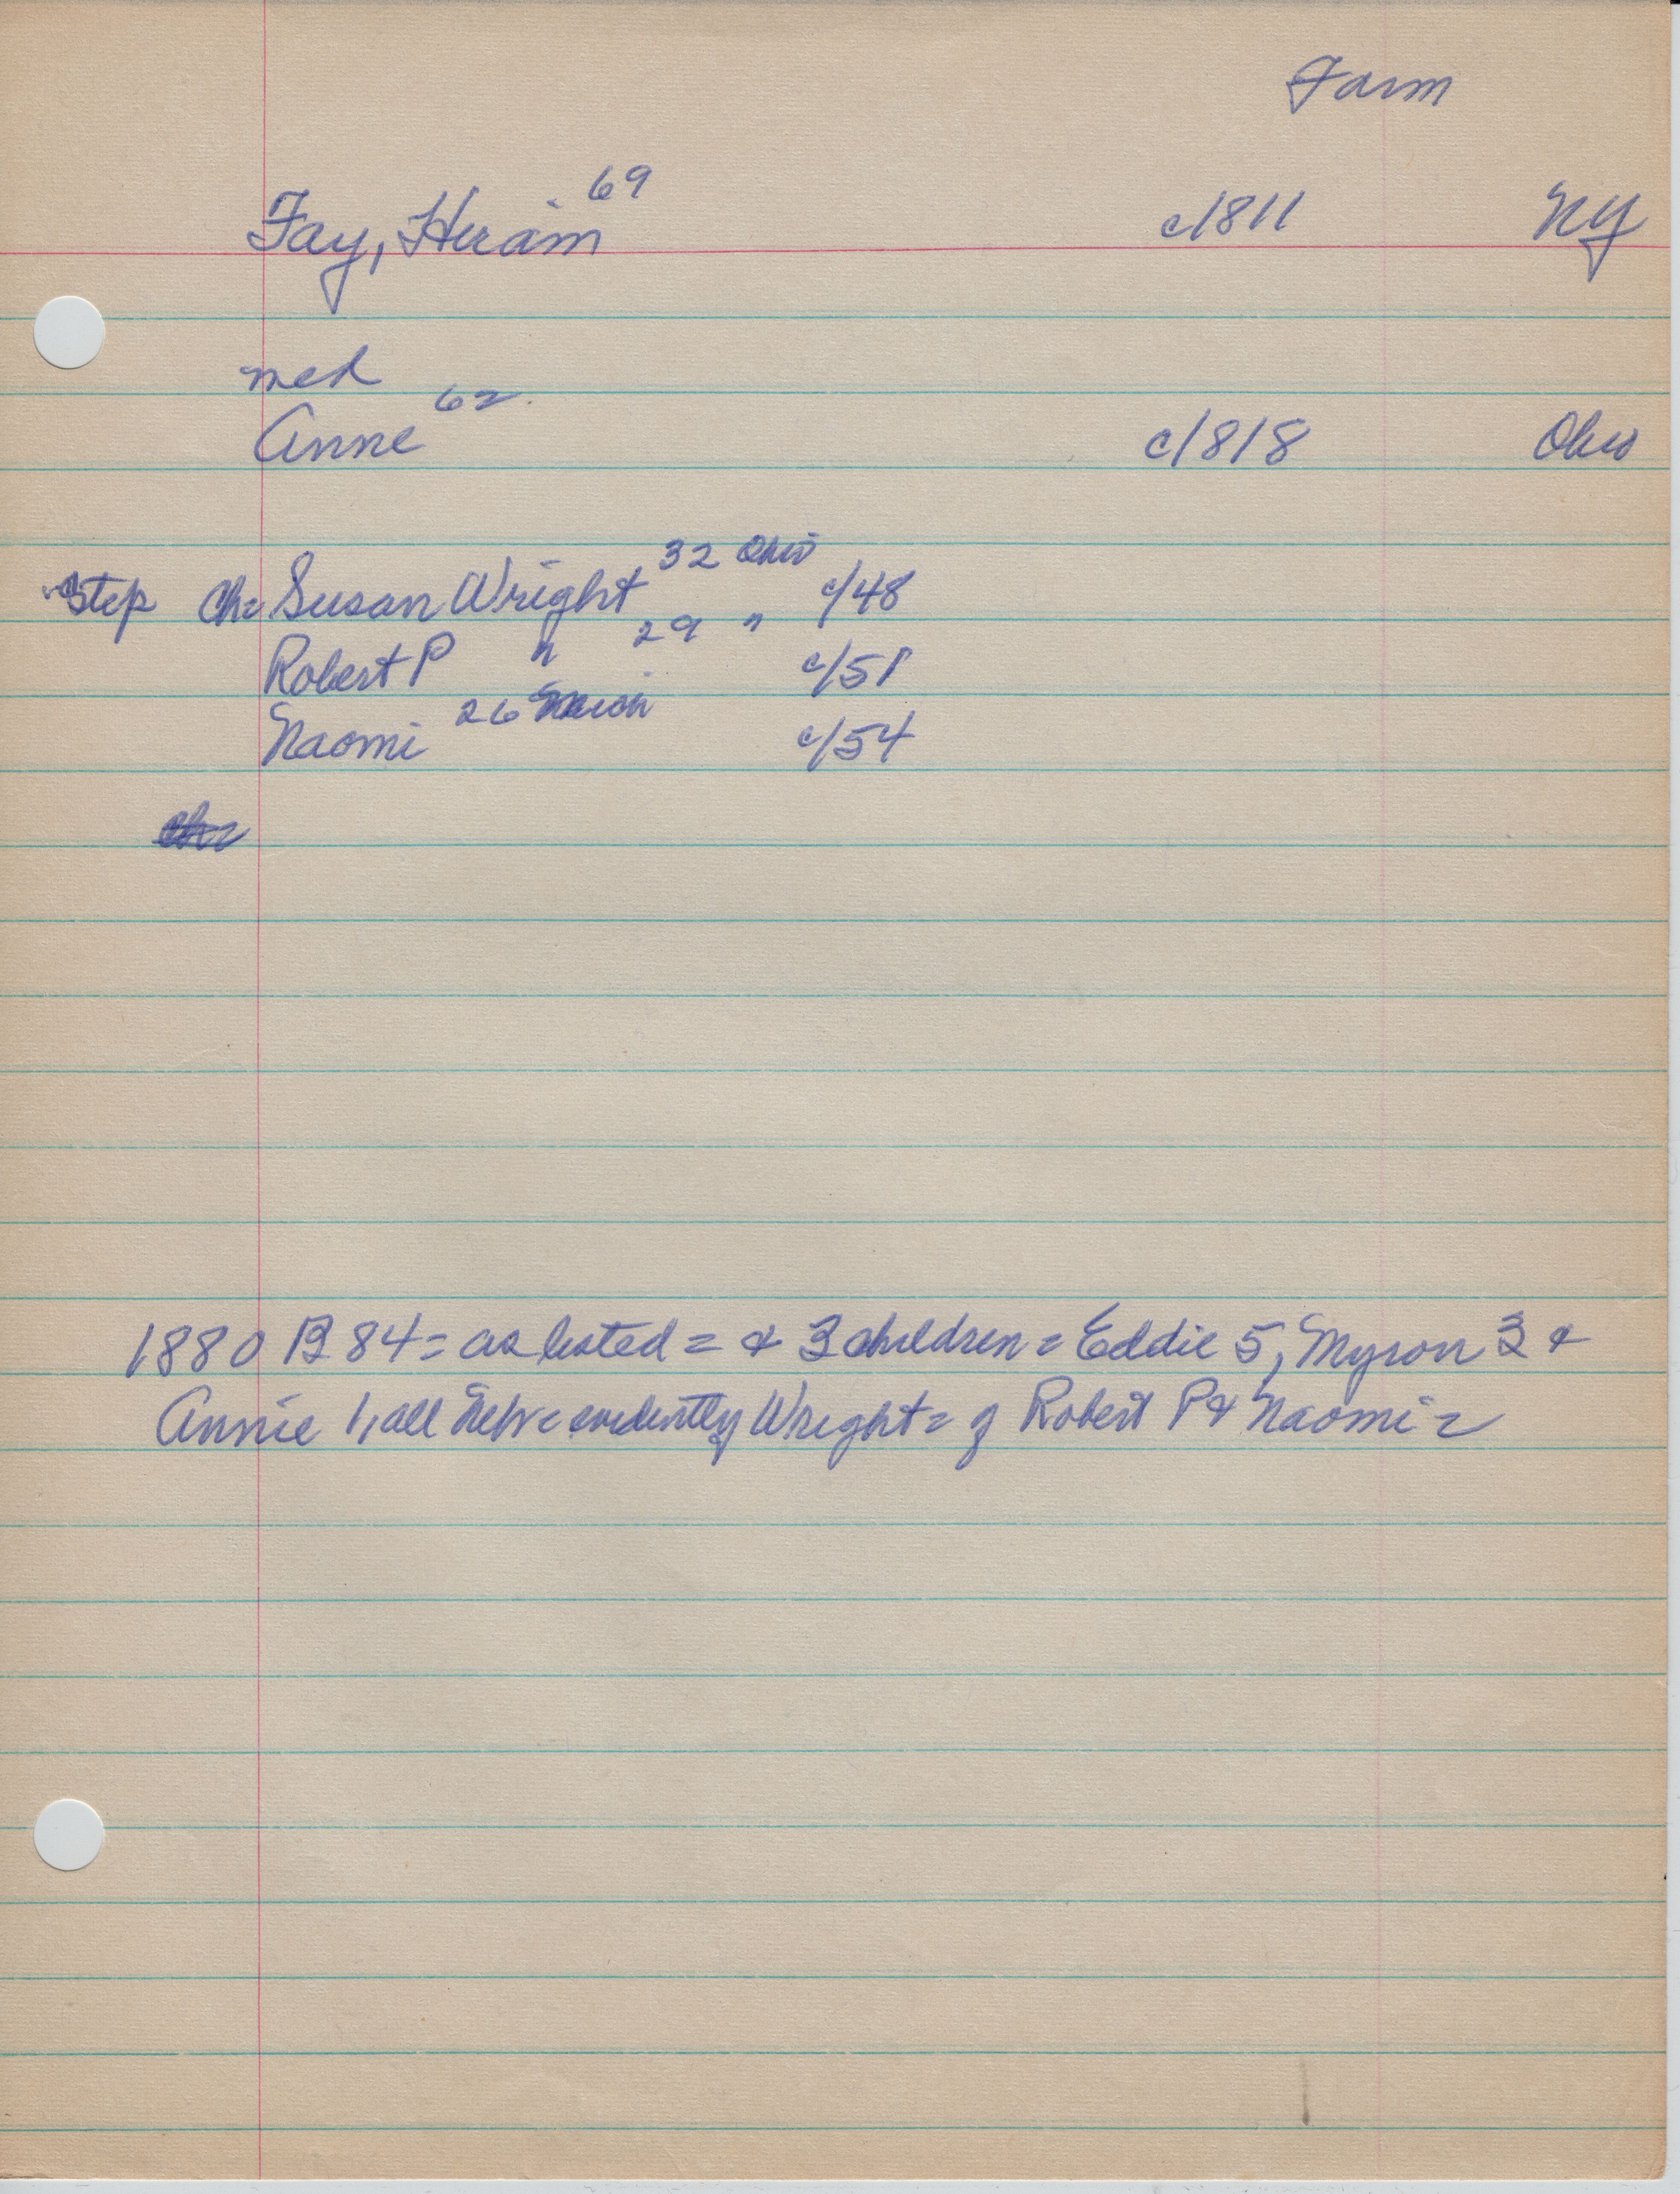 Farm
Fay, Hiram 69 c/1811 NY
med
Anne 62 c/1818 Ohio
Step Ch= Susan Wright 32 Ohio c/48
Robert P " 29 " c/51
Naomi 26 c/54
1880 B 84= as listed = & 3 children = Eddie 5, Myron 3 &
Annie 1, all evidently Wright= of Robert P & Naomi =